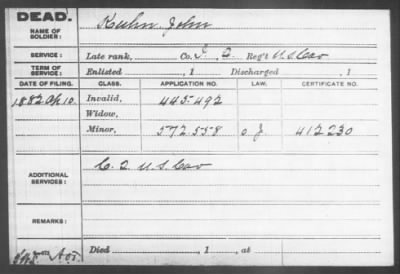 DEAD.
NAME OF SOLDIER: Kuhn, John
SERVICE: Late rank, Co. I, 2 Reg't U.S. Cav
TERM OF SERVICE: Enlisted , 1 Discharged , 1
DATE OF FILING. CLASS. APPLICATION NO. LAW. CERTIFICATE NO.
1882 Ap 10. Invalid, 445-492
Widow,
Minor, 572558 412230
ADDITIONAL SERVICES: C. 2 U.S. Cav
REMARKS:
Died , 1 , at